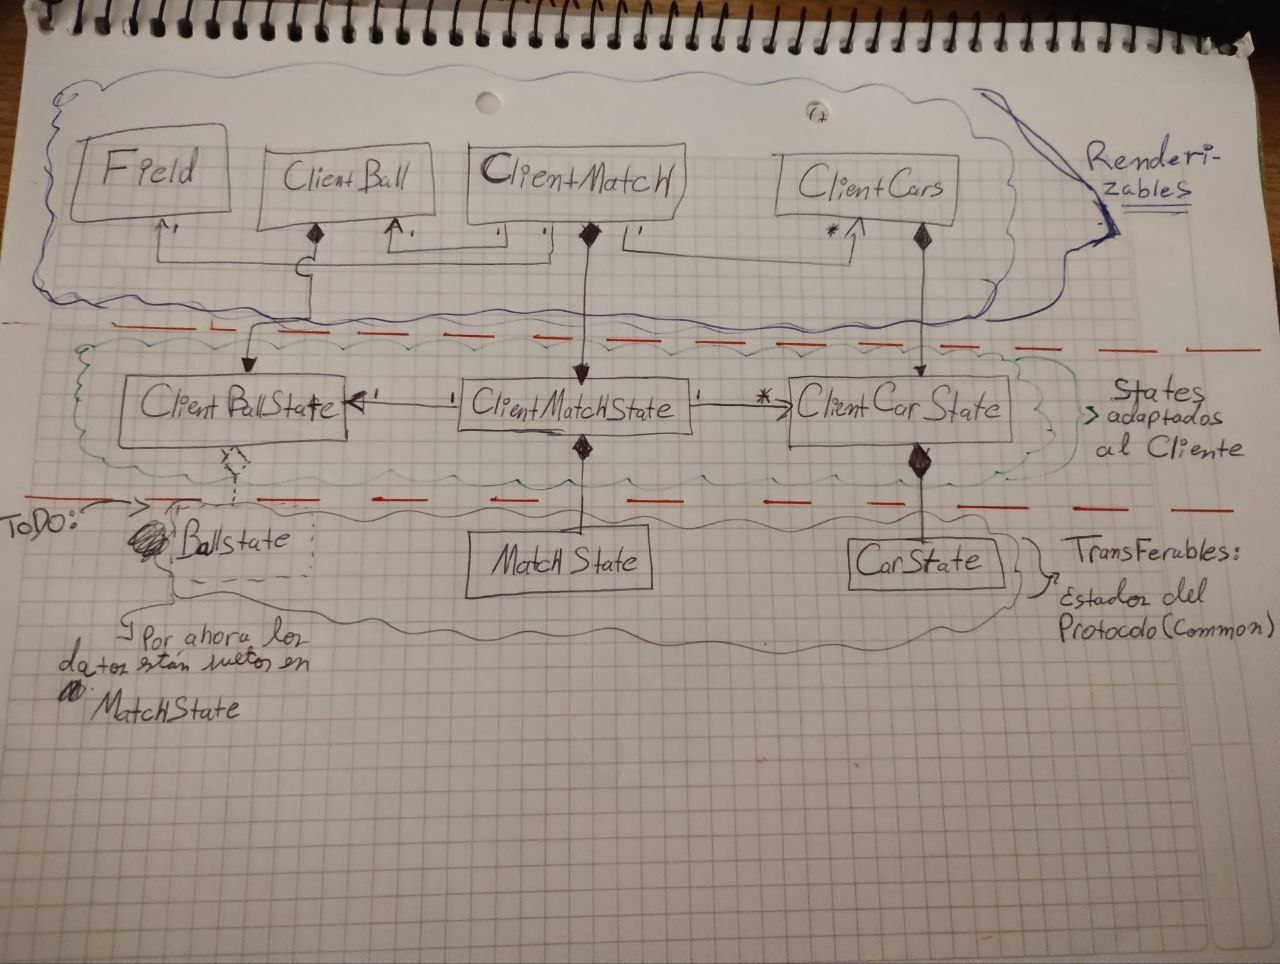 Field
ClientBall
ClientMatch
ClientCars
Renderi-
zables
1
1
1
1
1
*
ClientBallState
1
1
ClientMatchState
1
*
ClientCarState
States
adaptados
al Cliente
ToDO:
Ballstate
MatchState
CarState
Transferables:
Estados del
Protocolo (Common)
Por ahora los
datos están sueltos en
MatchState